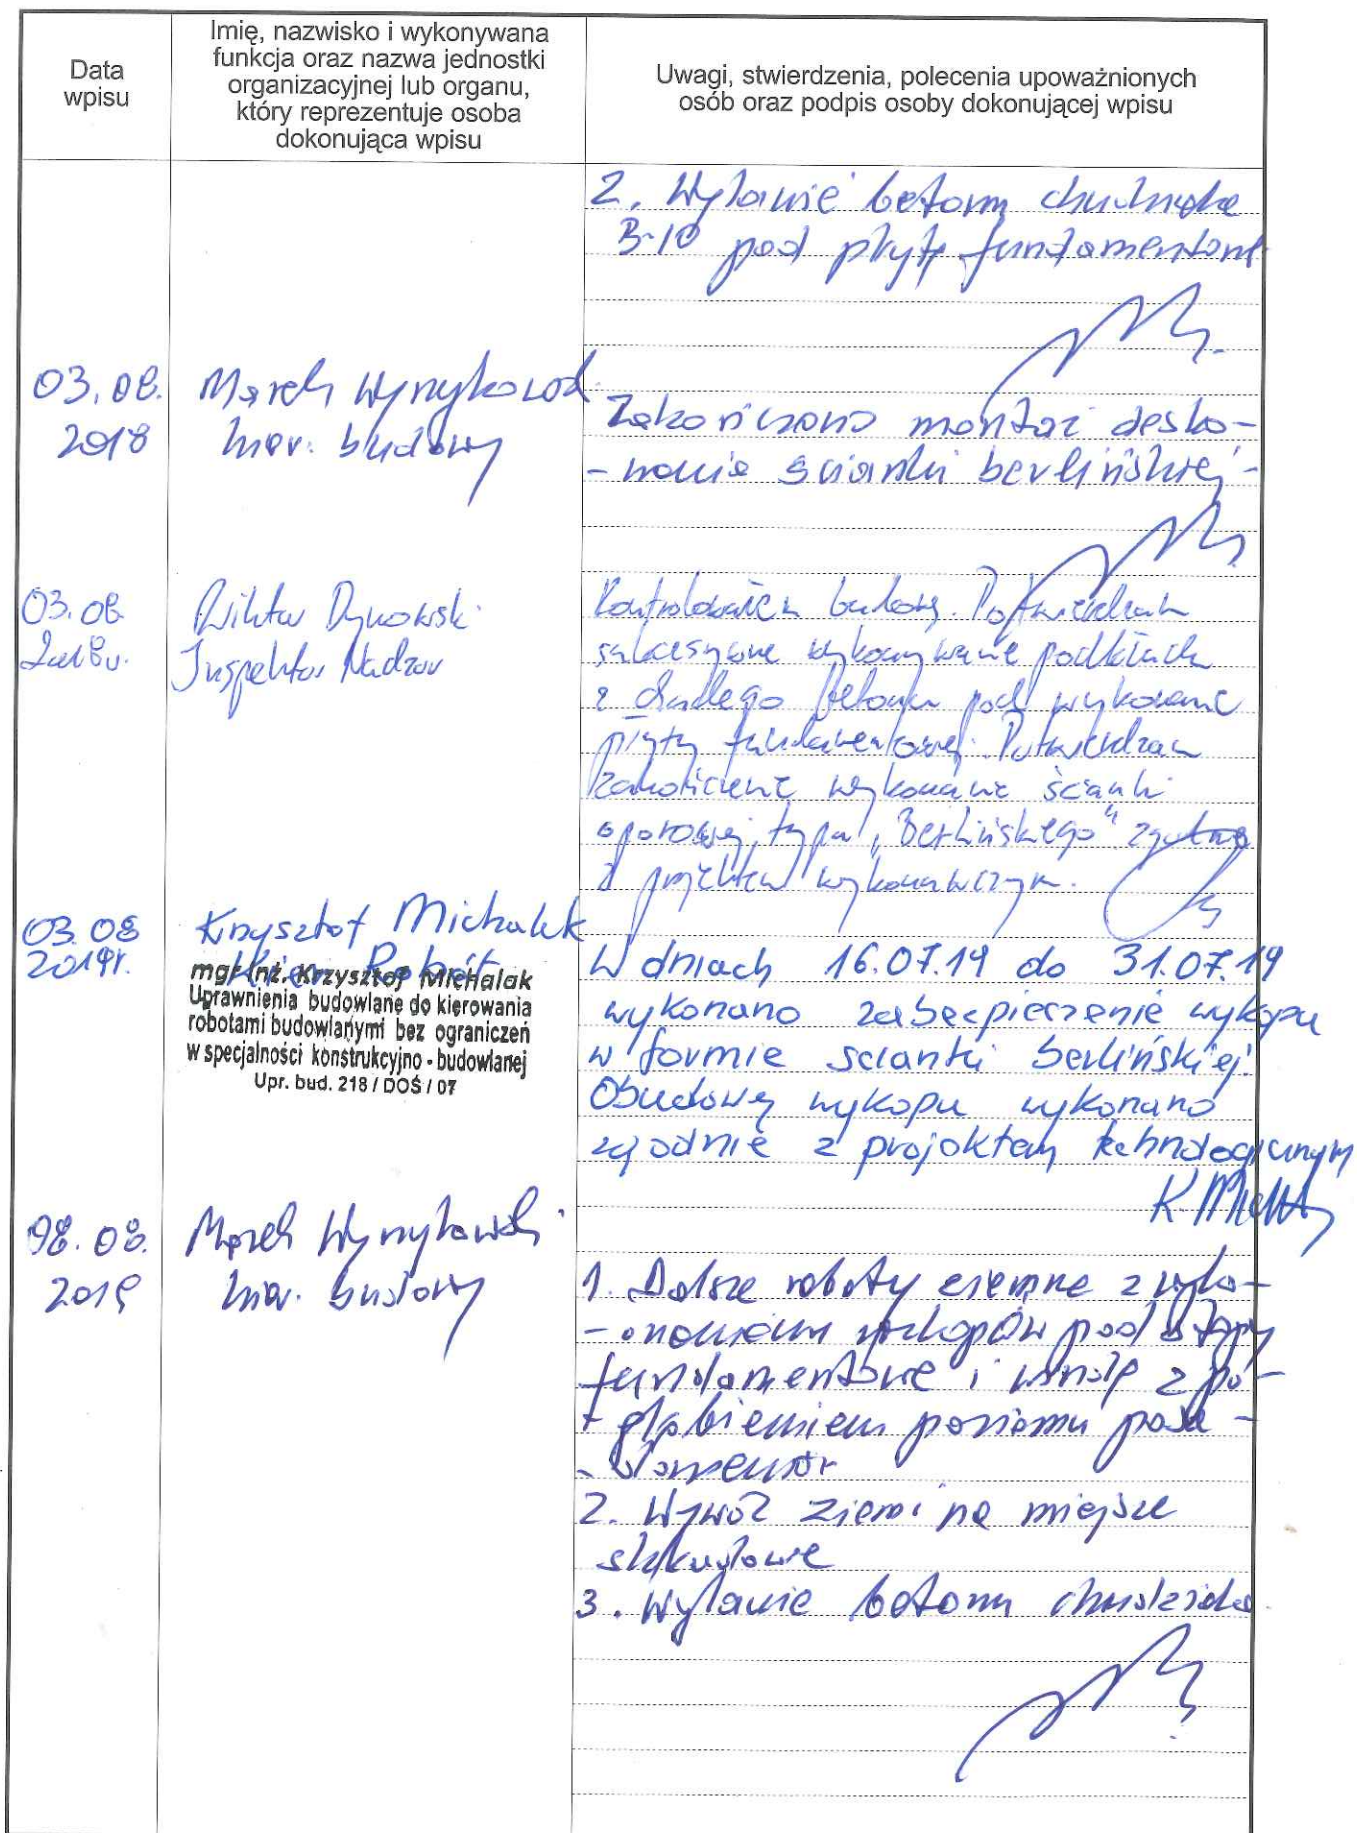 Data
wpisu
Imię, nazwisko i wykonywana
funkcja oraz nazwa jednostki
organizacyjnej lub organu,
który reprezentuje osoba
dokonująca wpisu
Uwagi, stwierdzenia, polecenia upoważnionych
osób oraz podpis osoby dokonującej wpisu
2. Wylanie betonu
B-10 pod płytę fundamentową
03.08.
2018
Marek
kier. budowy
Zakończono montaż desko-
-wania ścianki berlińskiej
03.08.
2018r.
Wiktor Dynowski
Inspektor Nadzoru
budowę. Potwierdzam
sukcesywne wykonywanie podkładu
z chudego betonu pod wykonanie
płyty fundamentowej. Potwierdzam
zakończenie wykonanie ścianki
oporowej typu „Berlińskiego" zgodnie
z projektem wykonawczym.
03.08
2019r.
Krzysztof Michalak
Kier. Robót
mgr inż. Krzysztof Michalak
Uprawnienia budowlane do kierowania
robotami budowlanymi bez ograniczeń
w specjalności konstrukcyjno - budowlanej
Upr. bud. 218 / DOŚ / 07
W dniach 16.07.19 do 31.07.19
wykonano zabezpieczenie wykopu
w formie scianki berlińskiej.
Obudowę wykopu wykonano
zgodnie z projektem technologicznym
08.08.
2019
Marek
kier. budowy
1. Dalsze roboty ziemne z wyko-
-naniem wykopów pod stopy
fundamentowe i windę z po-
-głębieniem poziomu posa-
2. Wywóz ziemi na miejsce
składowe
3. Wylanie betonu